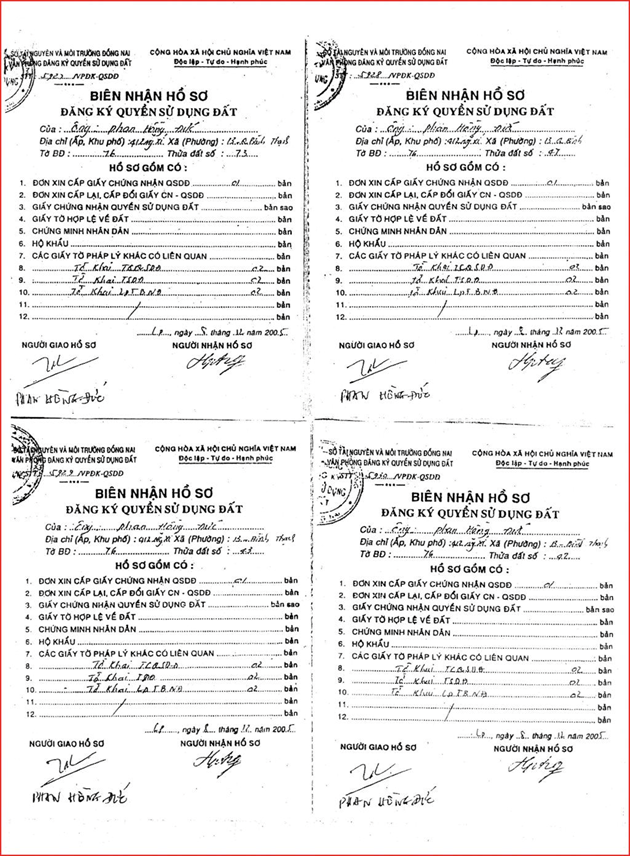 SỞ TÀI NGUYÊN VÀ MÔI TRƯỜNG ĐỒNG NAI
VĂN PHÒNG ĐĂNG KÝ QUYỀN SỬ DỤNG ĐẤT
/VPĐK-QSDĐ
CỘNG HÒA XÃ HỘI CHỦ NGHĨA VIỆT NAM
Độc lập - Tự do - Hạnh phúc
BIÊN NHẬN HỒ SƠ
ĐĂNG KÝ QUYỀN SỬ DỤNG ĐẤT
Của : Ông Phan Hồng Đức
Địa chỉ (Ấp, Khu phố) : Xã (Phường) :
Tờ BĐ : 76 Thửa đất số : 73
HỒ SƠ GỒM CÓ :
1. ĐƠN XIN CẤP GIẤY CHỨNG NHẬN QSDĐ 01 bản
2. ĐƠN XIN CẤP LẠI, CẤP ĐỔI GIẤY CN - QSDĐ bản
3. GIẤY CHỨNG NHẬN QUYỀN SỬ DỤNG ĐẤT bản sao
4. GIẤY TỜ HỢP LỆ VỀ ĐẤT bản
5. CHỨNG MINH NHÂN DÂN bản
6. HỘ KHẨU bản
7. CÁC GIẤY TỜ PHÁP LÝ KHÁC CÓ LIÊN QUAN bản
8. Tờ khai 02 bản
9. Tờ khai TSDĐ 02 bản
10. Tờ khai LPTBNĐ 02 bản
11. bản
12. bản
ngày 8 tháng 12 năm 2005
NGƯỜI GIAO HỒ SƠ NGƯỜI NHẬN HỒ SƠ
PHAN HỒNG ĐỨC
SỞ TÀI NGUYÊN VÀ MÔI TRƯỜNG ĐỒNG NAI
VĂN PHÒNG ĐĂNG KÝ QUYỀN SỬ DỤNG ĐẤT
/VPĐK-QSDĐ
CỘNG HÒA XÃ HỘI CHỦ NGHĨA VIỆT NAM
Độc lập - Tự do - Hạnh phúc
BIÊN NHẬN HỒ SƠ
ĐĂNG KÝ QUYỀN SỬ DỤNG ĐẤT
Của : Ông Phan Hồng Đức
Địa chỉ (Ấp, Khu phố) : Xã (Phường) :
Tờ BĐ : 76 Thửa đất số :
HỒ SƠ GỒM CÓ :
1. ĐƠN XIN CẤP GIẤY CHỨNG NHẬN QSDĐ 01 bản
2. ĐƠN XIN CẤP LẠI, CẤP ĐỔI GIẤY CN - QSDĐ bản
3. GIẤY CHỨNG NHẬN QUYỀN SỬ DỤNG ĐẤT bản sao
4. GIẤY TỜ HỢP LỆ VỀ ĐẤT bản
5. CHỨNG MINH NHÂN DÂN bản
6. HỘ KHẨU bản
7. CÁC GIẤY TỜ PHÁP LÝ KHÁC CÓ LIÊN QUAN bản
8. Tờ khai 02 bản
9. Tờ khai TSDĐ 02 bản
10. Tờ khai LPTBNĐ 02 bản
11. bản
12. bản
ngày 8 tháng 12 năm 2005
NGƯỜI GIAO HỒ SƠ NGƯỜI NHẬN HỒ SƠ
PHAN HỒNG ĐỨC
SỞ TÀI NGUYÊN VÀ MÔI TRƯỜNG ĐỒNG NAI
VĂN PHÒNG ĐĂNG KÝ QUYỀN SỬ DỤNG ĐẤT
/VPĐK-QSDĐ
CỘNG HÒA XÃ HỘI CHỦ NGHĨA VIỆT NAM
Độc lập - Tự do - Hạnh phúc
BIÊN NHẬN HỒ SƠ
ĐĂNG KÝ QUYỀN SỬ DỤNG ĐẤT
Của : Ông Phan Hồng Đức
Địa chỉ (Ấp, Khu phố) : Xã (Phường) :
Tờ BĐ : 76 Thửa đất số :
HỒ SƠ GỒM CÓ :
1. ĐƠN XIN CẤP GIẤY CHỨNG NHẬN QSDĐ 01 bản
2. ĐƠN XIN CẤP LẠI, CẤP ĐỔI GIẤY CN - QSDĐ bản
3. GIẤY CHỨNG NHẬN QUYỀN SỬ DỤNG ĐẤT bản sao
4. GIẤY TỜ HỢP LỆ VỀ ĐẤT bản
5. CHỨNG MINH NHÂN DÂN bản
6. HỘ KHẨU bản
7. CÁC GIẤY TỜ PHÁP LÝ KHÁC CÓ LIÊN QUAN bản
8. Tờ khai 02 bản
9. Tờ khai 02 bản
10. Tờ khai LPTBNĐ 02 bản
11. bản
12. bản
ngày 8 tháng năm 2005
NGƯỜI GIAO HỒ SƠ NGƯỜI NHẬN HỒ SƠ
PHAN HỒNG ĐỨC
SỞ TÀI NGUYÊN VÀ MÔI TRƯỜNG ĐỒNG NAI
VĂN PHÒNG ĐĂNG KÝ QUYỀN SỬ DỤNG ĐẤT
/VPĐK-QSDĐ
CỘNG HÒA XÃ HỘI CHỦ NGHĨA VIỆT NAM
Độc lập - Tự do - Hạnh phúc
BIÊN NHẬN HỒ SƠ
ĐĂNG KÝ QUYỀN SỬ DỤNG ĐẤT
Của : Ông Phan Hồng Đức
Địa chỉ (Ấp, Khu phố) : Xã (Phường) :
Tờ BĐ : 76 Thửa đất số :
HỒ SƠ GỒM CÓ :
1. ĐƠN XIN CẤP GIẤY CHỨNG NHẬN QSDĐ 01 bản
2. ĐƠN XIN CẤP LẠI, CẤP ĐỔI GIẤY CN - QSDĐ bản
3. GIẤY CHỨNG NHẬN QUYỀN SỬ DỤNG ĐẤT bản sao
4. GIẤY TỜ HỢP LỆ VỀ ĐẤT bản
5. CHỨNG MINH NHÂN DÂN bản
6. HỘ KHẨU bản
7. CÁC GIẤY TỜ PHÁP LÝ KHÁC CÓ LIÊN QUAN bản
8. Tờ khai 02 bản
9. Tờ khai TSDĐ 02 bản
10. Tờ khai LPTBNĐ 02 bản
11. bản
12. bản
ngày 8 tháng 12 năm 2005
NGƯỜI GIAO HỒ SƠ NGƯỜI NHẬN HỒ SƠ
PHAN HỒNG ĐỨC